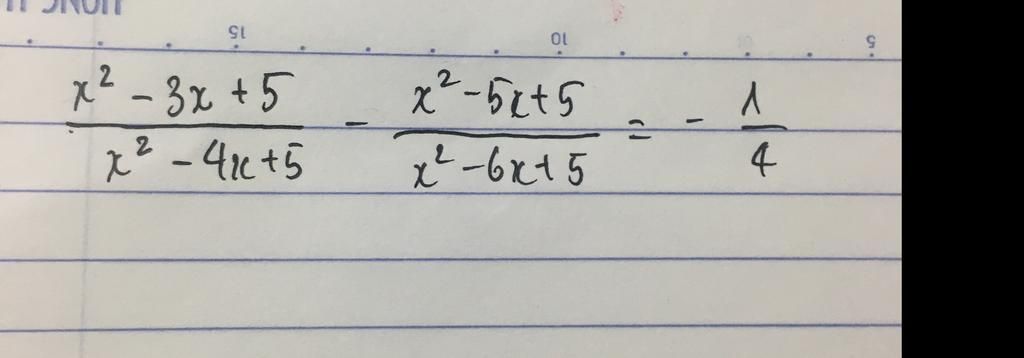 15 10 5
x² - 3x + 5 / x² - 4x + 5 - x² - 5x + 5 / x² - 6x + 5 = - 1 / 4